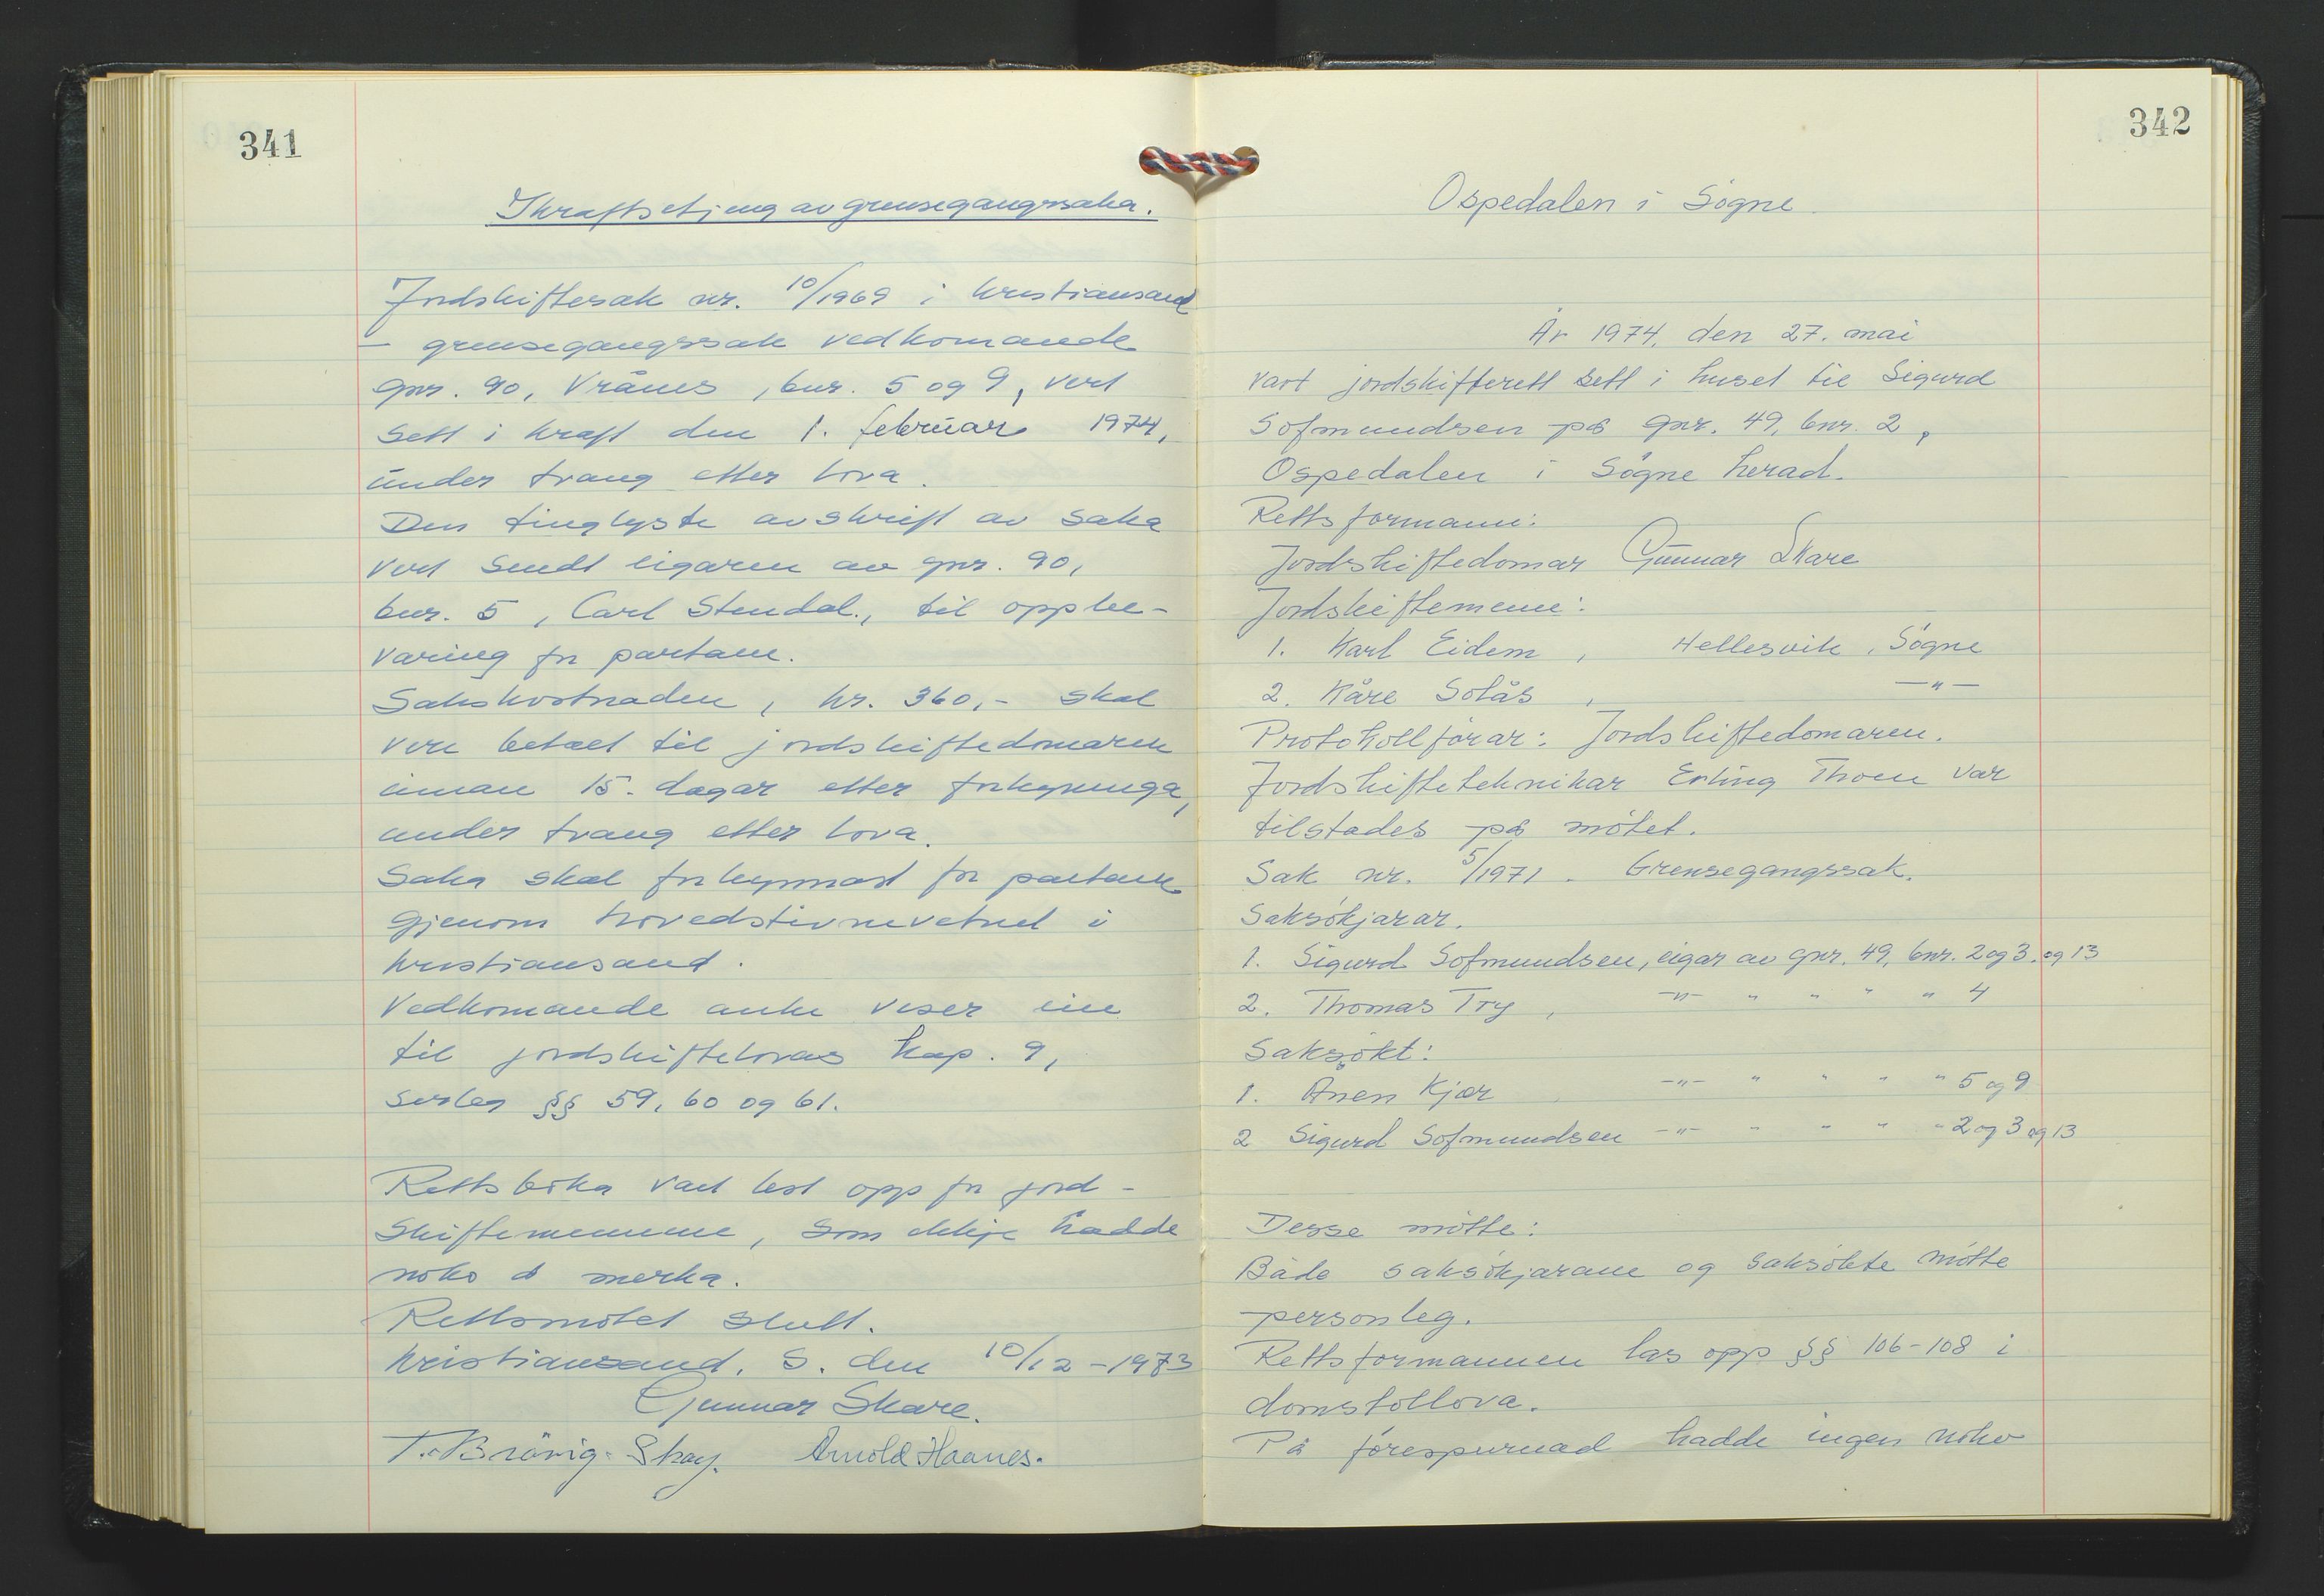 341
Ikraftsetjing av grensegangssaka.
Jordskiftesak nr. 10/1969 i Kristiansand
- grensegangssak vedkomande
gnr. 90, Vrånes, bnr. 5 og 9, vert
sett i kraft den 1. februar 1974,
under tvang etter lova.
Den tinglyste avskrift av saka
vert sendt eigaren av gnr. 90,
bnr. 5, Carl Stendal., til oppbe-
varing for partane.
Sakskostnaden, kr. 360,- skal
vere betalt til jordskiftedomaren
innan 15. dagar etter forkynninga,
under tvang etter lova.
Saka skal forkynnast for partane
gjenom hovedstevnevetnet i
Kristiansand.
Vedkomande anke viser ein
til jordskiftelovas kap. 9,
serleg §§ 59, 60 og 61.
Rettsboka vart lest opp for jord-
skiftemennene, som ikkje hadde
noko å merka.
Rettsmøtet slutt.
Kristiansand. S. den 10/12-1973
Gunnar Skare.
T. Brövig-Skay. Arnold Haanes.
342
Ospedalen i Søgne
År 1974, den 27. mai
vart jordskifterett sett i huset til Sigurd
Sofmundsen på gnr. 49, bnr. 2,
Ospedalen i Søgne herad.
Rettsformann:
Jordskiftedomar Gunnar Skare
Jordskiftemenn:
1. Karl Eidem, Hellesvik, Søgne
2. Kåre Solås, -"-
Protokollførar: Jordskiftedomaren.
Jordskifteteknikar Erling Thoen var
tilstades på møtet.
Sak nr. 5/1971. Grensegangssak.
Saksøkjarar.
1. Sigurd Sofmundsen, eigar av gnr. 49, bnr. 2 og 3. og 13
2. Thomas Try, -"- " " " " 4
Saksøkt:
1. Ånen Kjær -"- " " " " 5 og 9
2 Sigurd Sofmundsen -"- " " " " 2 og 3 og 13
Desse møtte:
Både saksøkjarane og saksøkte møtte
personleg.
Rettsformannen las opp §§ 106-108 i
domstollova.
På førespurnad hadde ingen noko